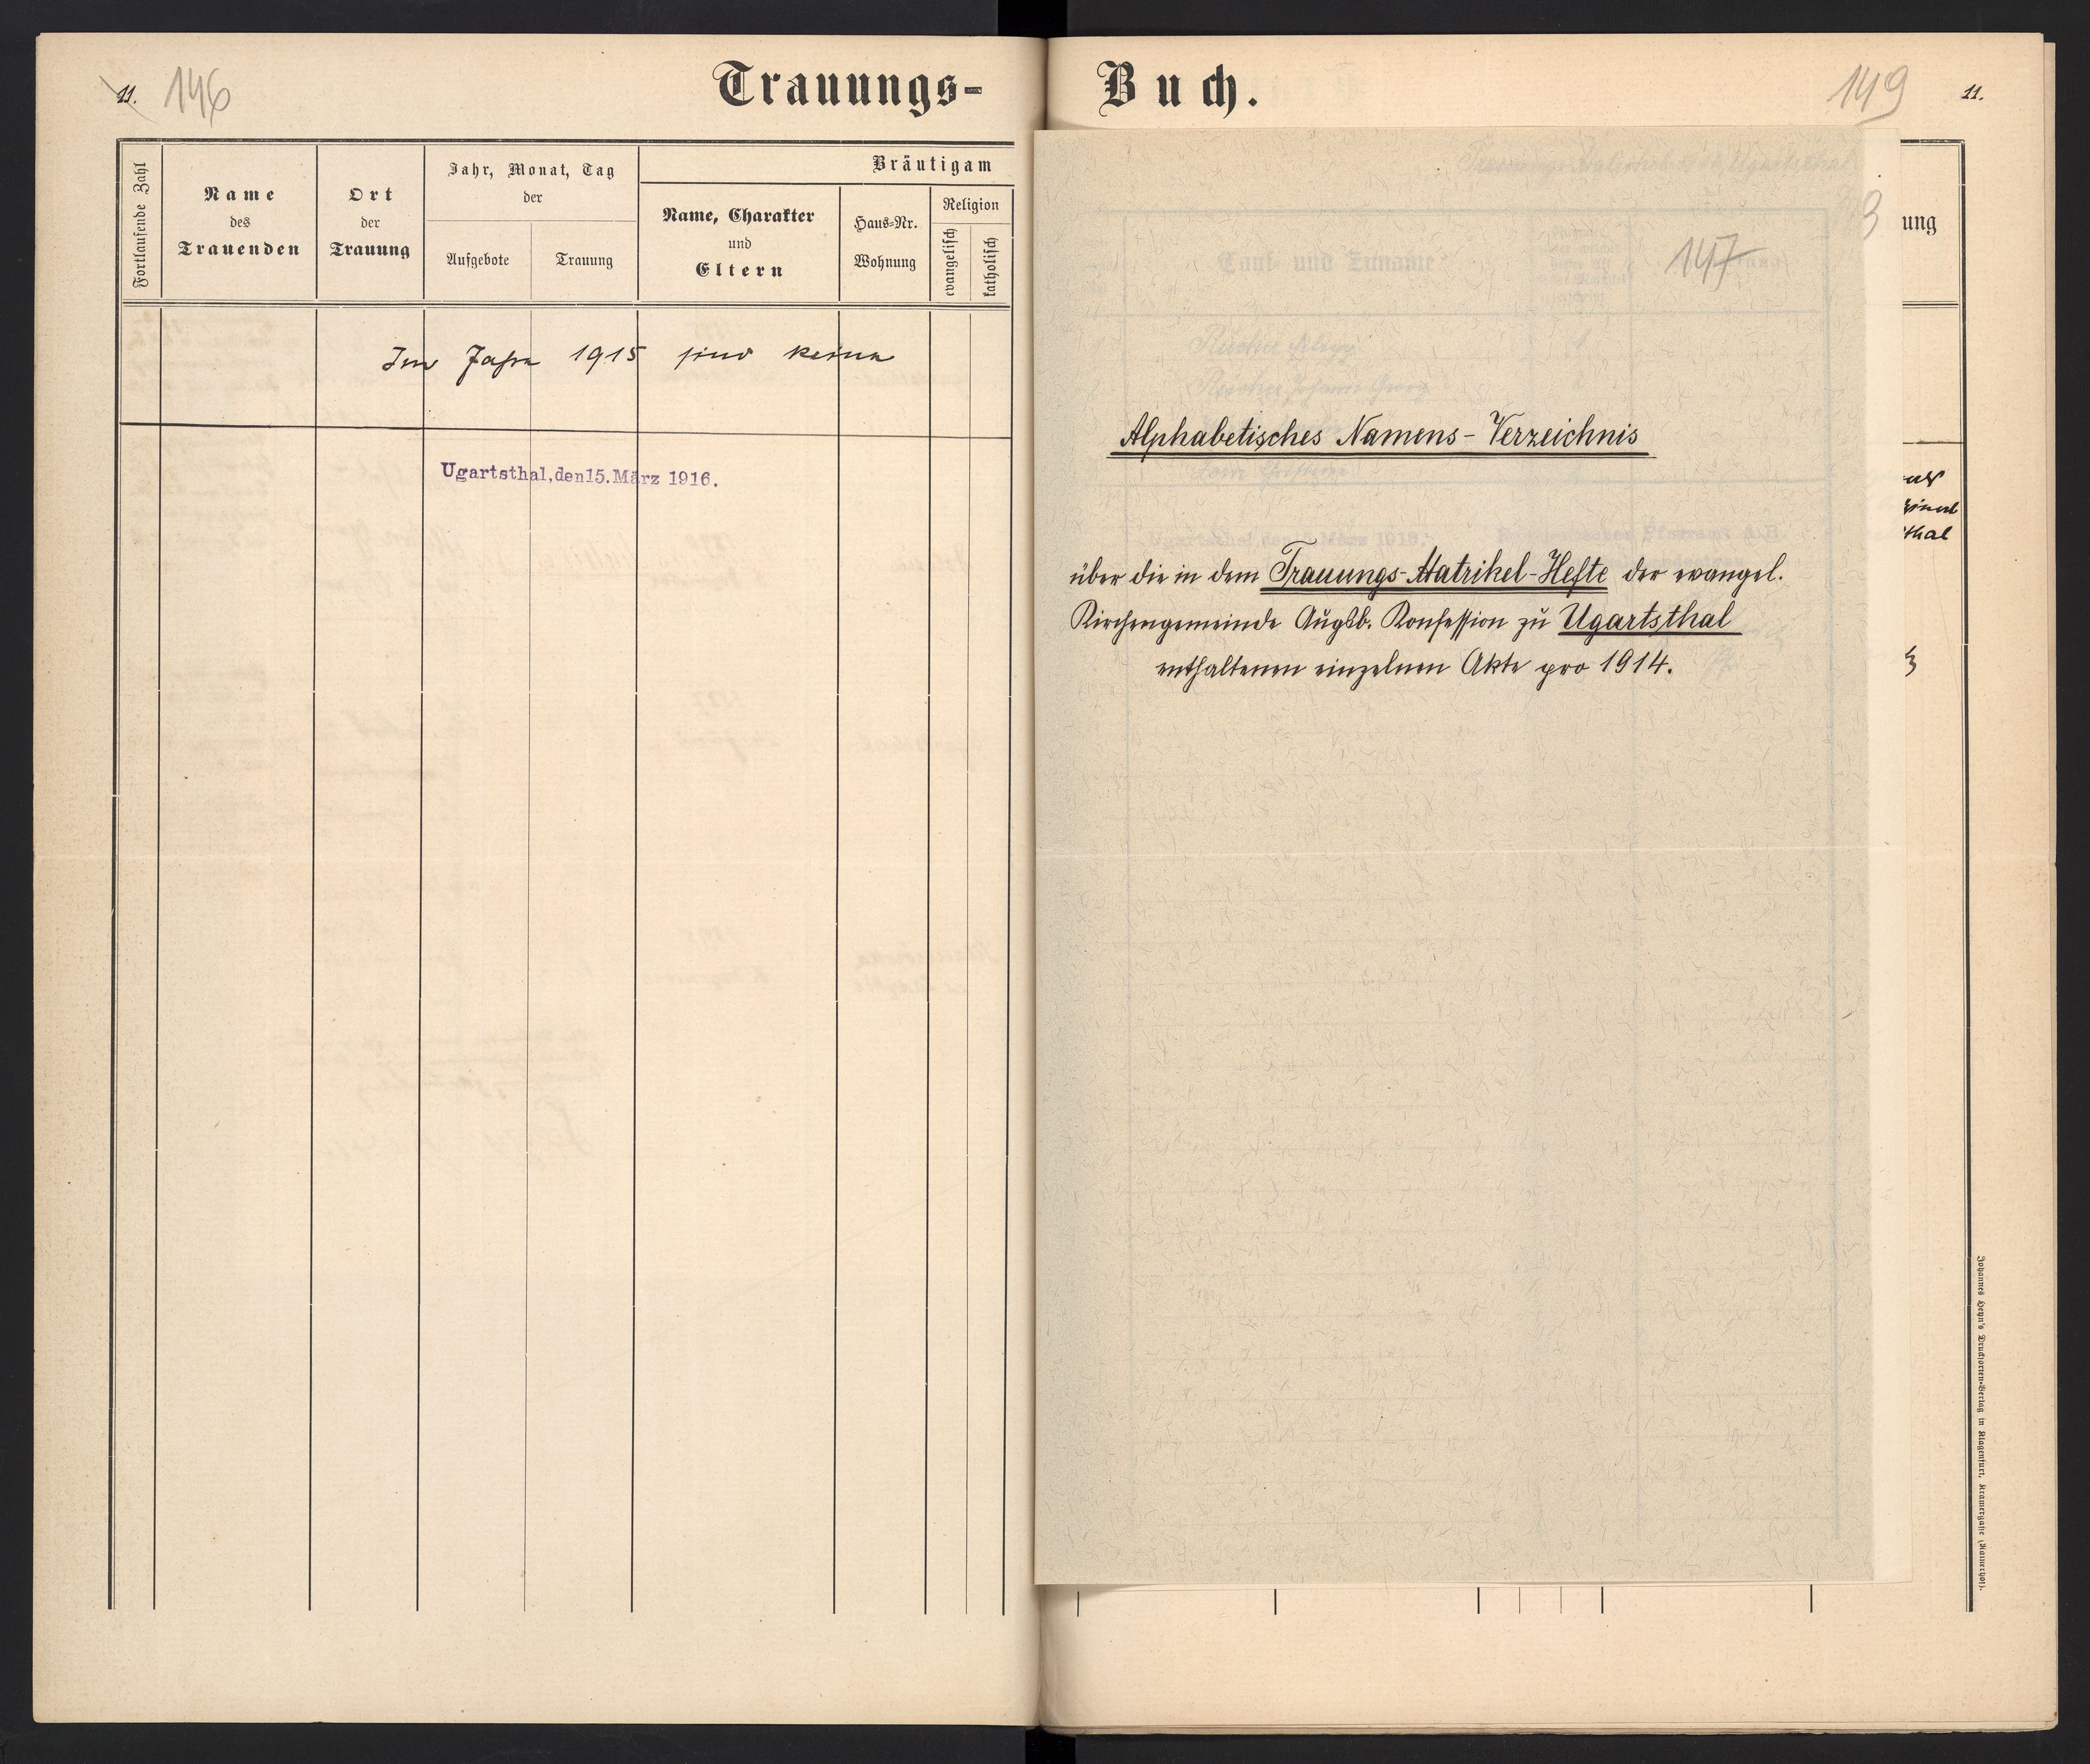 11. 146
Trauungs-
Fortlaufende Zahl
Name
des
Trauenden
Ort
der
Trauung
Jahr, Monat, Tag
der
Aufgebote
Trauung
Bräutigam
Name, Charakter
und
Eltern
Haus-Nr.
Wohnung
Religion
evangelisch
katholisch
Im Jahre 1915 sind keine
Ugartsthal, den 15. März 1916.
Buch.
149 11.
ung
147
Tauf- und Zuname
Alphabetisches Namens-Verzeichnis
über die in dem Trauungs-Matrikel-Hefte der evangel.
Kirchengemeinde Augsb. Konfession zu Ugartsthal
enthaltenen einzelnen Akte pro 1914.
thal
Johannes Heyn's Drucksorten-Verlag in Klagenfurt, Kramergasse (Kamerhof).